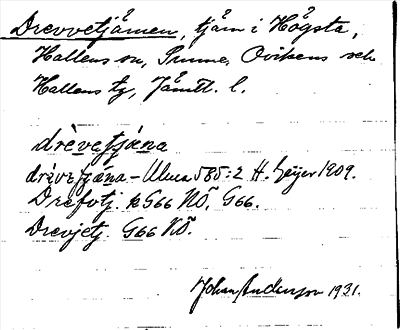 Drevvetjärnen, tjärn i Högsta,
Hallens sn, Sunne, Ovikens och
Hallens tg, Jämtl. l.
drèvetjána
drèvetjána – Ulma 585:2 H. Geijer 1909.
Drefvtj. k G66 NÖ, G66.
Drevjetj. G66 NÖ.
Johan Anderson 1931.